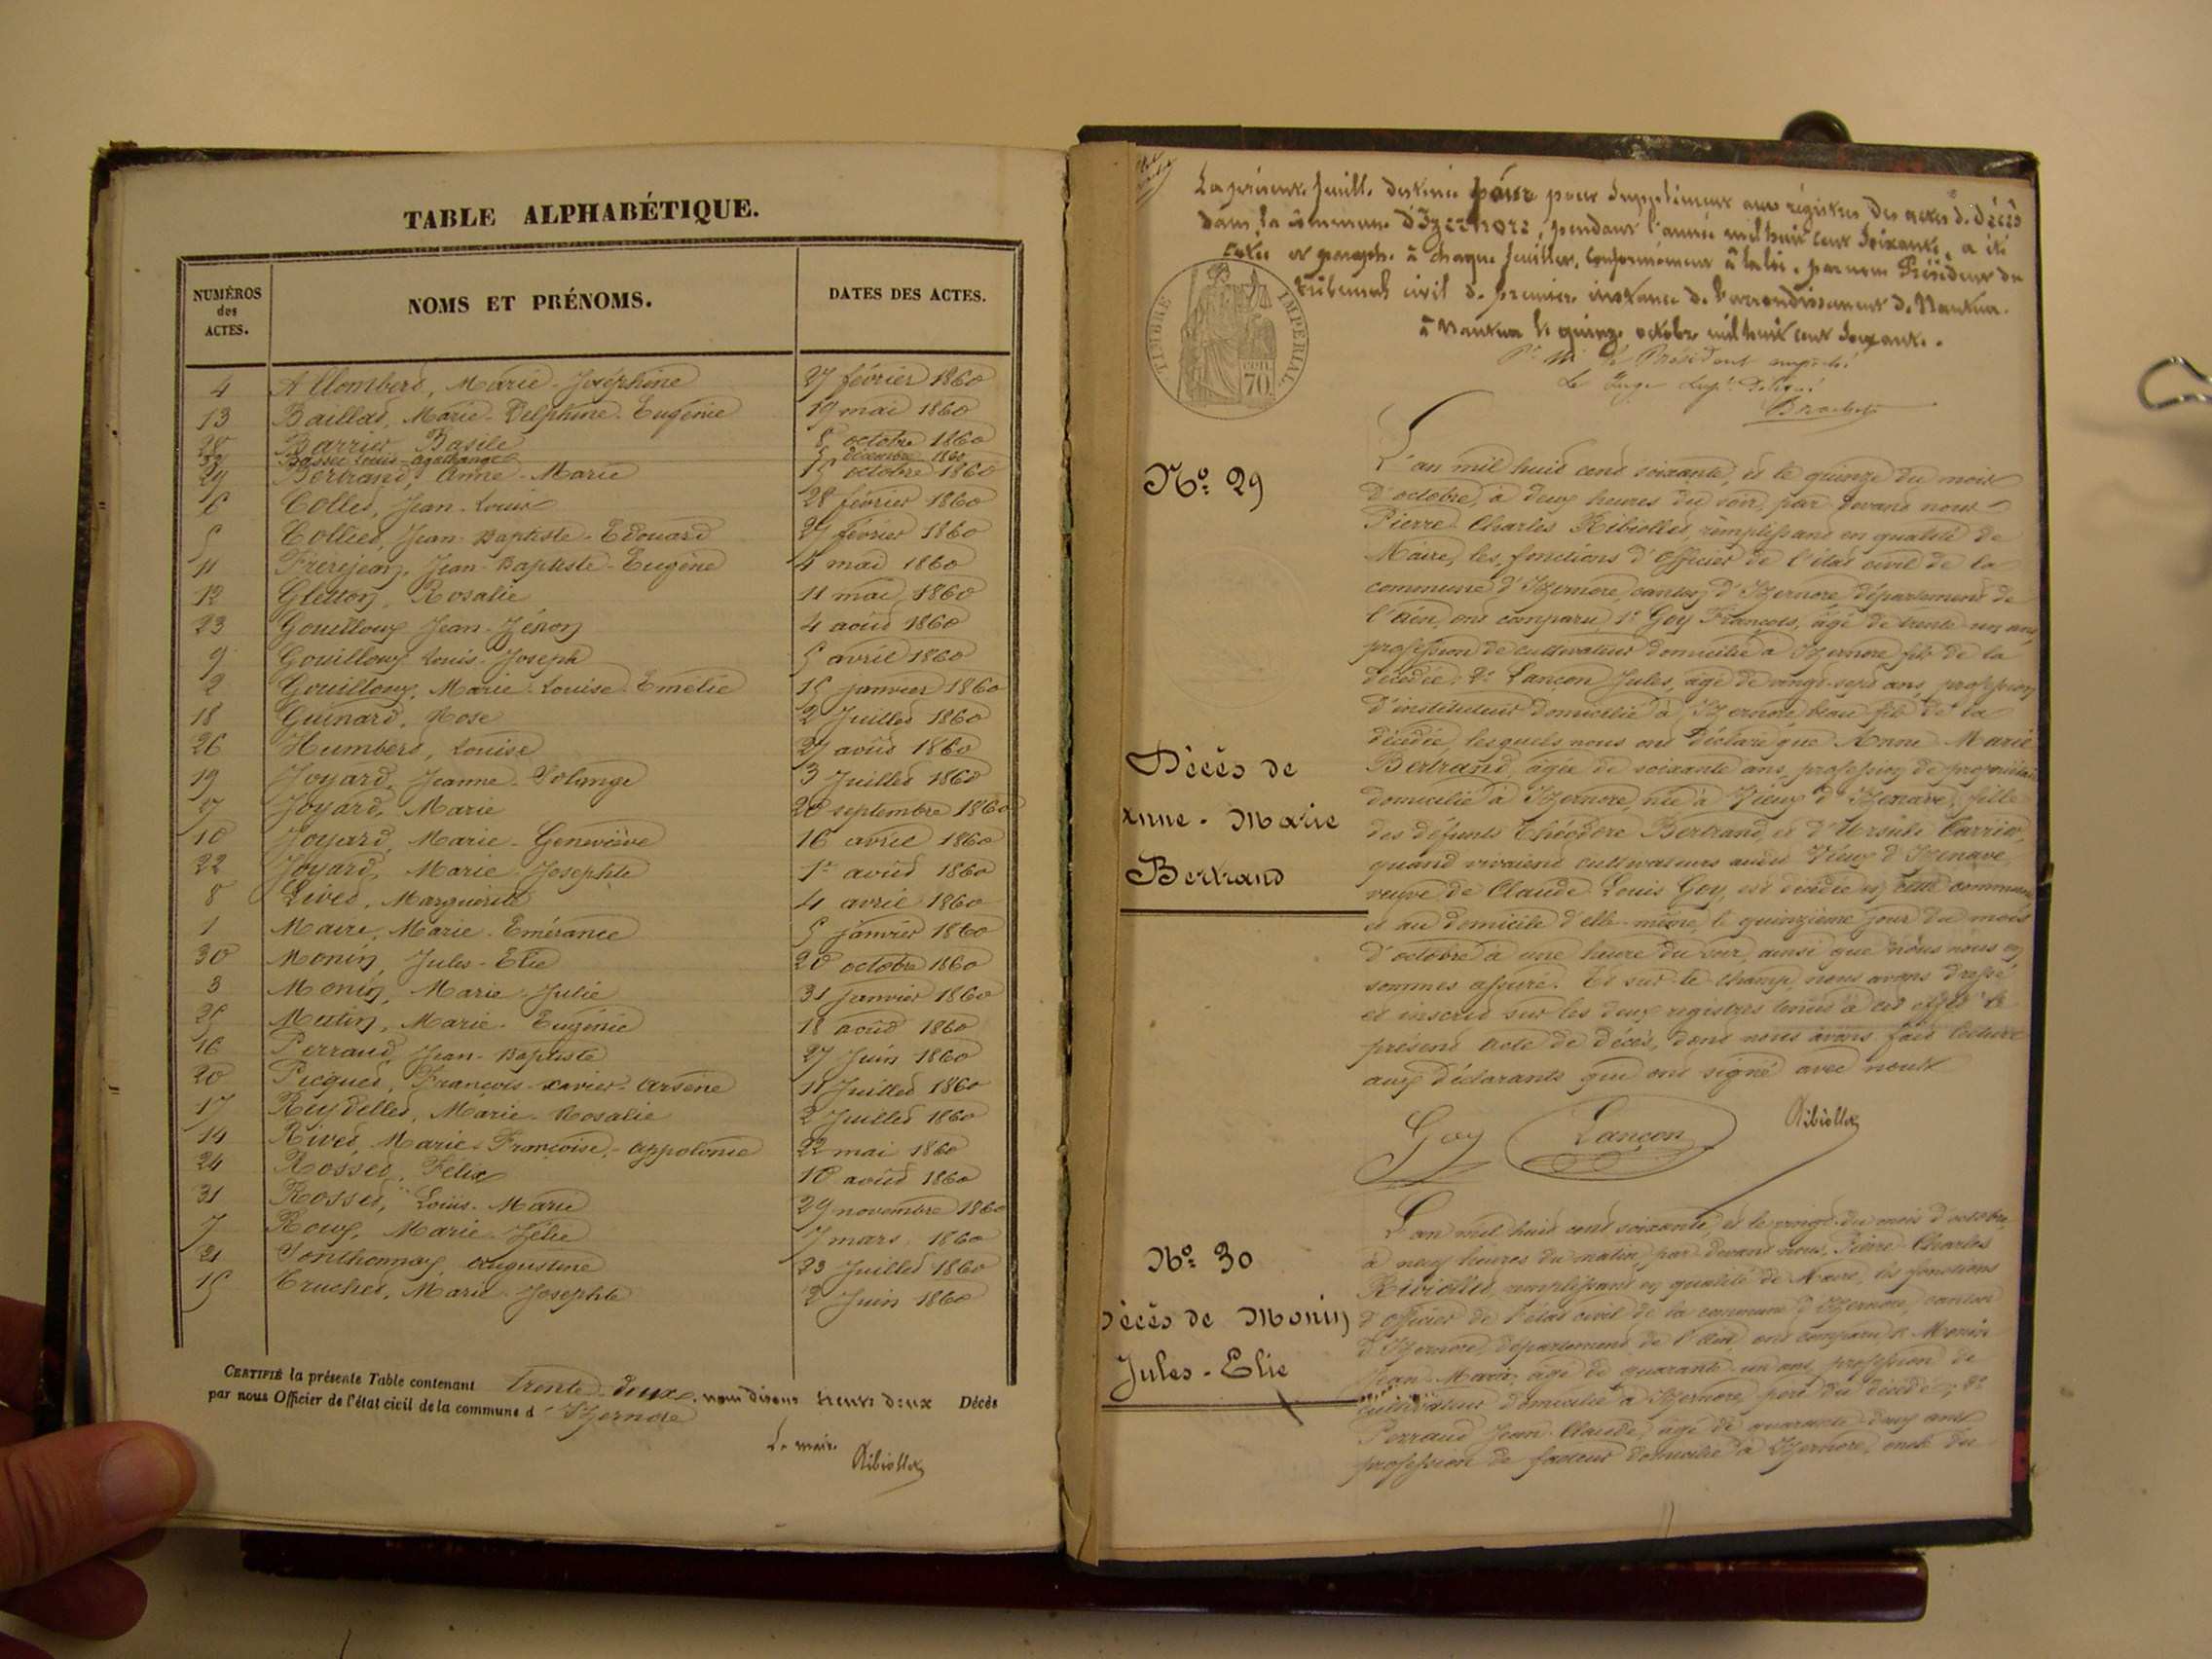 TABLE ALPHABÉTIQUE.
NUMÉROS
des
ACTES.
NOMS ET PRÉNOMS.
DATES DES ACTES.
4 Allombert, Marie-Joséphine 27 février 1860
13 Baillat, Marie-Delphine-Eugénie 19 mai 1860
28 Barrier Basile 8 octobre 1860
32 Louis 5 décembre 1860
29 Bertrand, Anne-Marie 15 octobre 1860
6 Collet, Jean-Louis 28 février 1860
5 Collet, Jean-Baptiste-Edouard 27 février 1860
11 Frerejean, Jean-Baptiste-Eugène 4 mai 1860
12 Gletton, Rosalie 11 mai 1860
23 Gouilloux Jean-Zénon 4 août 1860
9 Gouilloux Louis-Joseph 5 avril 1860
2 Gouilloux, Marie-Louise-Emélie 15 janvier 1860
18 Guinard, Rose 2 Juillet 1860
26 Humbert, Louise 27 août 1860
19 Joyard, Jeanne-Solange 3 Juillet 1860
27 Joyard, Marie 20 septembre 1860
10 Joyard, Marie-Geneviève 16 avril 1860
22 Joyard, Marie-Josephte 1er août 1860
8 Livet, Marguerite 4 avril 1860
1 Maire, Marie-Emérance 5 janvier 1860
30 Monin, Jules-Elie 20 octobre 1860
3 Monin, Marie-Julie 31 janvier 1860
25 Mutin, Marie-Eugénie 18 août 1860
16 Perraud, Jean-Baptiste 27 Juin 1860
20 Picquet, François-Xavier-Arsène 11 Juillet 1860
17 Reydellet, Marie-Rosalie 2 Juillet 1860
14 Rivet, Marie-Françoise-Appolonie 22 mai 1860
24 Rosset, Félix 10 août 1860
31 Rosset, Louis-Marie 29 novembre 1860
7 Roux, Marie-Zélie 7 mars 1860
21 Sonthonnax Augustine 23 Juillet 1860
15 Truchet, Marie-Josephte 2 Juin 1860
CERTIFIÉ la présente Table contenant trente-deux, nous disons trente deux Décès
par nous Officier de l'état civil de la commune d'Izernore
Le maire
Ribiollet
La présente feuille destinée pour pour supplément aux régistres des actes de décès
dans la commune d'Izernore, pendant l'année mil huit cent soixante, a été
cotée et paraphée à chaque feuillet, conformément à la loi, par nous Président du
tribunal civil de première instance de l'arrondissement de Nantua.
à Nantua le quinze octobre mil huit cent soixante.
Pr Mr le Président empêché
Le Juge supt délégué
TIMBRE IMPERIAL
CEN.
70
No 29
Décès de
Anne-Marie
Bertrand
L'an mil huit cent soixante, et le quinze du mois
d'octobre, à deux heures du soir, par devant nous
Pierre-Charles Ribiollet, remplissant en qualité de
Maire, les fonctions d'Officier de l'état civil de la
commune d'Izernore, canton d'Izernore département de
l'Ain, ont comparu 1° Goy François, âgé de trente un ans,
profession de cultivateur domicilié à Izernore fils de la
décédée 2° Lançon Jules, âgé de vingt-sept ans, profession
d'instituteur domicilié à Izernore beau fils de la
décédée, lesquels nous ont déclaré que Anne Marie
Bertrand, âgée de soixante ans, profession de propriétaire
domicilié à Izernore, née à Vieux d'Izenave, fille
des défunts Théodore Bertrand, et d'Ursule Carrier,
quand vivaient cultivateurs audit Vieux d'Izenave,
veuve de Claude-Louis Goy, est décédée en cette commune
et au domicile d'elle-même, le quinzième jour du mois
d'octobre à une heure du soir, ainsi que nous nous en
sommes assuré. Et sur-le-champ, nous avons dressé
et inscrit sur les deux registres tenus à cet effet le
présent acte de décès, dont nous avons fait lecture
aux déclarants qui ont signé avec nous
Goy Lançon Ribiollet
No 30
Décès de Monin
Jules-Elie
L'an mil huit cent soixante, et le vingt du mois d'octobre,
à neuf heures du matin, par devant nous, Pierre Charles
Ribiollet, remplissant en qualité de Maire, les fonctions
d'officier de l'état civil de la commune d'Izernore, canton
d'Izernore, département de l'Ain, ont comparu 1° Monin
Jean-Marie, âgé de quarante-un ans, profession de
cultivateur domicilié à Izernore, père du décédé; 2°
Perraud Jean-Claude, âgé de quarante-deux ans
profession de facteur domicilié à Izernore, oncle du